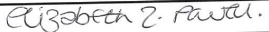 Elizabeth Z. Pawel.